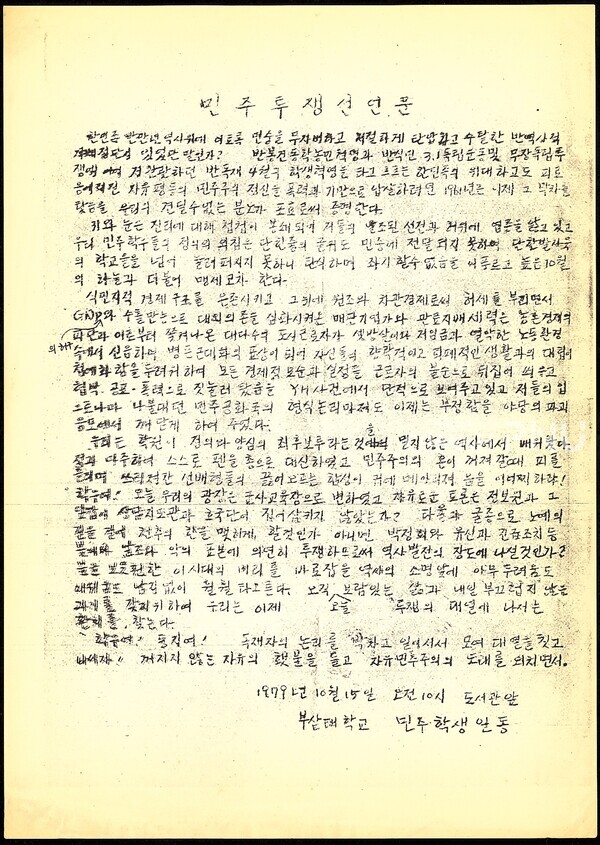 민주투쟁선언문
한민족 반만년 역사위에 이토록 민중을 무자비하고 처절하게 탄압하고 수탈한 반역사적
지배집단이 있었단 말인가? 반봉건 동학농민혁명과 반식민 3.1독립운동 및 무장독립투
쟁 4월 학생혁명을 타고 흐르는 한민족의 위대하고도 피로
자유 평등의 민주주의 정신을 폭력과 기만으로 압살하려던 1961년은 이제 그
우리의 견딜수없는 분노가 포효로써 증명한다.
귀와 눈은 진리에 대해 첨첨이 봉쇄되어 저들의 날조된 선전과 허위에 열중을 앓고 있고
우리 민주학우들의 정의의 외침은 단 한줄의 글귀도 민중에 전달되지 못하며
의 학교를 넘어 퍼지지 못하니 단식하며 좌시할수 없음을 푸르고 높은 10월
의 하늘과 더불어 맹세코자 한다.
식민지적 경제구조를 온존시키고 그위에 원조와 차관경제로써 허세를 부리면서
GNP와 수출만능으로 대외의존을 심화시켜온 매판기업가와 관료지배세력은 농촌경제의
파탄과 이로부터 쫓겨나온 대다수의 도시근로자가 셋방살이와 저임금과 열악한 노동환경
의해
속에서 신음하며 병든근대화의 표상이 되어 자신들의 향락적이고 퇴폐적인 생활과의 대립이
첨예화함을 두려워하여 모든 경제적 모순과 실정을 근로자의 불순으로 뒤집어 씌우고
협박 공포·폭력으로 짓눌러 왔음을 YH사건에서 단적으로 보여주고 있고 저들의 입
으로나마 나불대던 민주공화국의 형식논리마저도 이제는 부정함을 야당의 파괴
음모에서 깨닫게 하여 주었다.
우리는 학원이 정의와 양심의 최후보루라는것을 믿지않는 역사에서 배워왔다
스스로 펜을 총으로 대신하였고 민주주의의 혼이 꺼져갈때 피를
선배형들의 끓어오르는 함성이 귀에 메아리쳐 옴을 어찌하랴!
학우여! 오늘 우리의 광장은 군사교육장으로 변하였고 자유로운 토론은 정보원과 그
상담지도관과 호국단이 집어삼키지 않았는가? 타율과 굴종으로 노예의
길을 걸어 천추의 한을 맺히게 할것인가 아니면 박정희와 유신과 긴급조치등
불의의 날조와 악의 표본에 의연히 투쟁함으로써 역사발전의 장도에 나설것인가?
이 시대의 비리를 바로잡을 역사의 소명앞에 아무두려움도
남김없이 훨훨타오른다. 오직 보람있는 삶과 내일 부끄럽지 않은
과거를 갖기위하여 우리는 이제 오늘 투쟁의 대열에 나서는
환희를 찾는다.
학우여! 동지여! 독재자의 논리를 박차고 일어서서 모여 대열을 짓고
나서자! 꺼지지 않는 자유의 횃불을 들고 자유민주주의의 노래를 외치면서.
1979년 10월 15일 오전 10시 도서관앞
부산대학교 민주학생일동